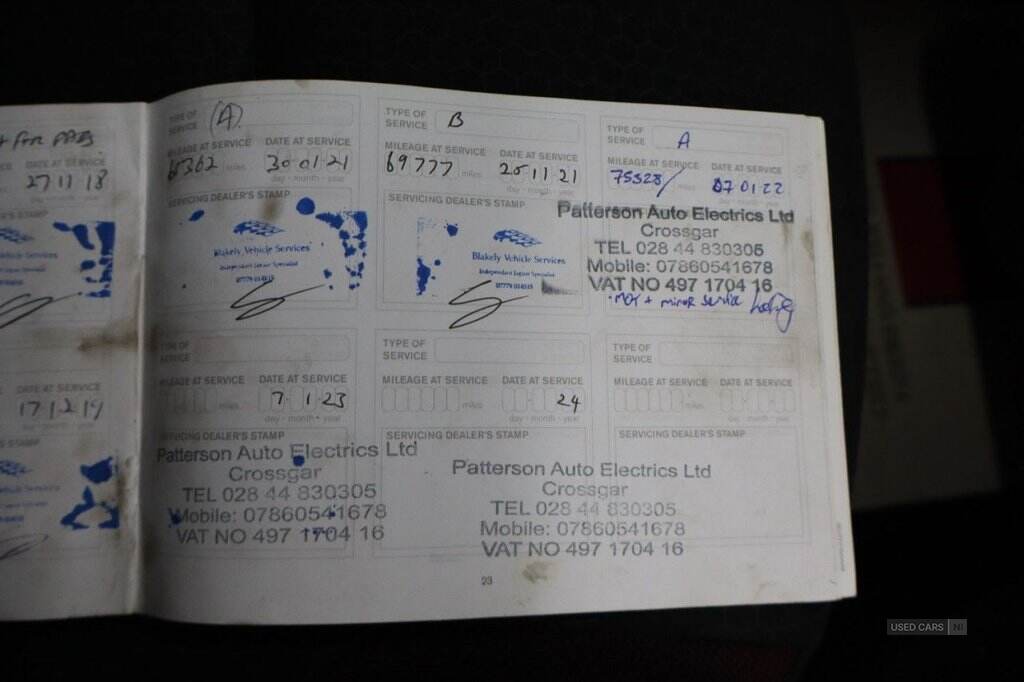 For PADS
DATE AT SERVICE
27 11 18
DATE AT SERVICE
17 12 19
TYPE OF SERVICE (A)
MILEAGE AT SERVICE DATE AT SERVICE
65362 miles 30 01 21
day - month - year
SERVICING DEALER'S STAMP
Blakely Vehicle Services
Independent Jaguar Specialist
TYPE OF SERVICE B
MILEAGE AT SERVICE DATE AT SERVICE
69777 miles 25 11 21
day - month - year
SERVICING DEALER'S STAMP
Blakely Vehicle Services
Independent Jaguar Specialist
TYPE OF SERVICE A
MILEAGE AT SERVICE DATE AT SERVICE
75328 miles 07 01 22
Patterson Auto Electrics Ltd
Crossgar
TEL 028 44 830305
Mobile: 07860541678
VAT NO 497 1704 16
MOT + minor service
TYPE OF SERVICE
MILEAGE AT SERVICE DATE AT SERVICE
miles 7 1 23
day - month - year
SERVICING DEALER'S STAMP
Patterson Auto Electrics Ltd
Crossgar
TEL 028 44 830305
Mobile: 07860541678
VAT NO 497 1704 16
TYPE OF SERVICE
MILEAGE AT SERVICE DATE AT SERVICE
miles 24
day - month - year
SERVICING DEALER'S STAMP
Patterson Auto Electrics Ltd
Crossgar
TEL 028 44 830305
Mobile: 07860541678
VAT NO 497 1704 16
TYPE OF SERVICE
MILEAGE AT SERVICE DATE AT SERVICE
miles
day - month - year
SERVICING DEALER'S STAMP
23
USED CARS NI